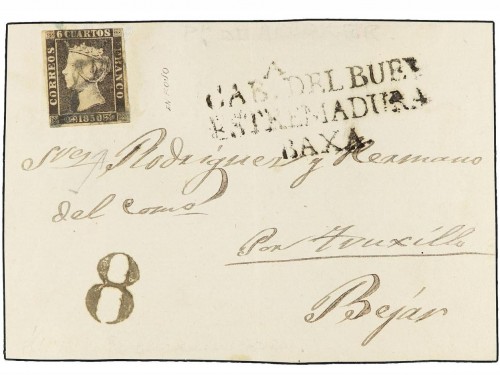 CORREOS
6 CUARTOS
FRANCO
1850
CABZ. DEL BUEY
ESTREMADURA
BAXA
Sres Rodriguez y Hermano
del comº
Por Truxillo
8
Bejar